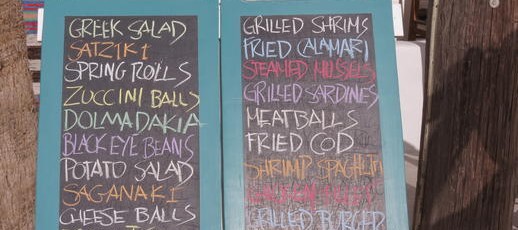 GREEK SALAD
SATZIKI
SPRING ROLLS
ZUCCINI BALLS
DOLMADAKIA
BLACK EYE BEANS
POTATO SALAD
SAGANAKI
CHEESE BALLS
GRILLED SHRIMS
FRIED CALAMARI
STEAMED MUSSELS
GRILLED SARDINES
MEATBALLS
FRIED COD
SHRIMP SPAGHETTI
GRILLED BURGER